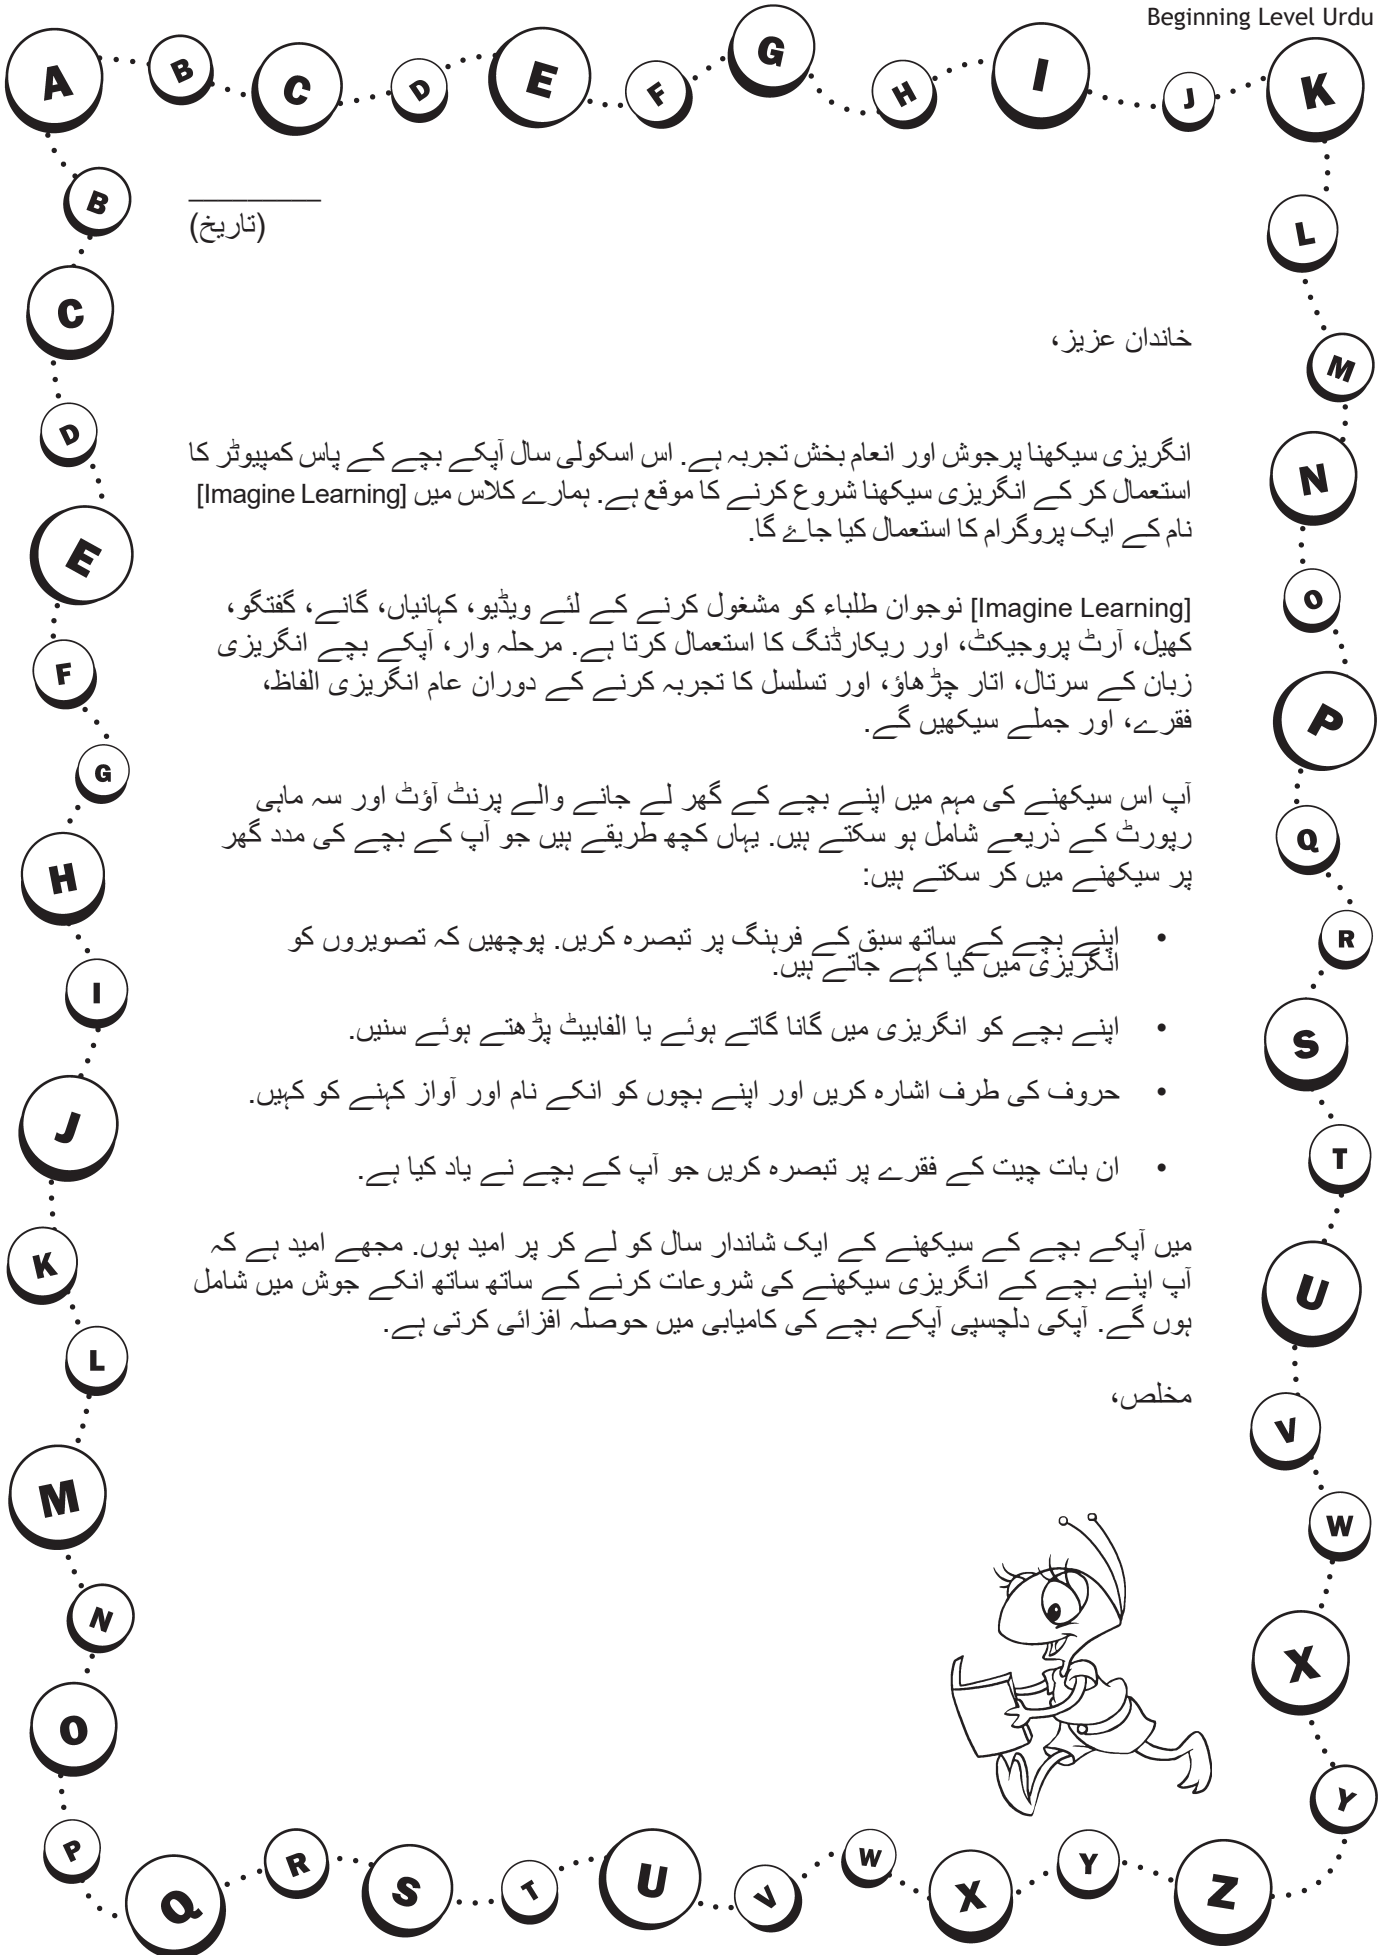 Beginning Level Urdu
A
B
C
D
E
F
G
H
I
J
K
B
C
D
E
F
G
H
I
J
K
L
M
N
O
P
Q
R
S
T
U
V
W
X
Y
Z
L
M
N
O
P
Q
R
S
T
U
V
W
X
Y
(تاریخ)
خاندان عزیز،
انگریزی سیکھنا پرجوش اور انعام بخش تجربہ ہے. اس اسکولی سال آپکے بچے کے پاس کمپیوٹر کا
استعمال کر کے انگریزی سیکھنا شروع کرنے کا موقع ہے. ہمارے کلاس میں [Imagine Learning]
نام کے ایک پروگرام کا استعمال کیا جاۓ گا.
[Imagine Learning] نوجوان طلباء کو مشغول کرنے کے لئے ویڈیو، کہانیاں، گانے، گفتگو،
کھیل، آرٹ پروجیکٹ، اور ریکارڈنگ کا استعمال کرتا ہے. مرحلہ وار، آپکے بچے انگریزی
زبان کے سرتال، اتار چڑھاؤ، اور تسلسل کا تجربہ کرنے کے دوران عام انگریزی الفاظ،
فقرے، اور جملے سیکھیں گے.
آپ اس سیکھنے کی مہم میں اپنے بچے کے گھر لے جانے والے پرنٹ آؤٹ اور سہ ماہی
رپورٹ کے ذریعے شامل ہو سکتے ہیں. یہاں کچھ طریقے ہیں جو آپ کے بچے کی مدد گھر
پر سیکھنے میں کر سکتے ہیں:
• اپنے بچے کے ساتھ سبق کے فرہنگ پر تبصرہ کریں. پوچھیں کہ تصویروں کو
انگریزی میں کیا کہے جاتے ہیں.
• اپنے بچے کو انگریزی میں گانا گاتے ہوئے یا الفابیٹ پڑھتے ہوئے سنیں.
• حروف کی طرف اشارہ کریں اور اپنے بچوں کو انکے نام اور آواز کہنے کو کہیں.
• ان بات چیت کے فقرے پر تبصرہ کریں جو آپ کے بچے نے یاد کیا ہے.
میں آپکے بچے کے سیکھنے کے ایک شاندار سال کو لے کر پر امید ہوں. مجھے امید ہے کہ
آپ اپنے بچے کے انگریزی سیکھنے کی شروعات کرنے کے ساتھ ساتھ انکے جوش میں شامل
ہوں گے. آپکی دلچسپی آپکے بچے کی کامیابی میں حوصلہ افزائی کرتی ہے.
مخلص،